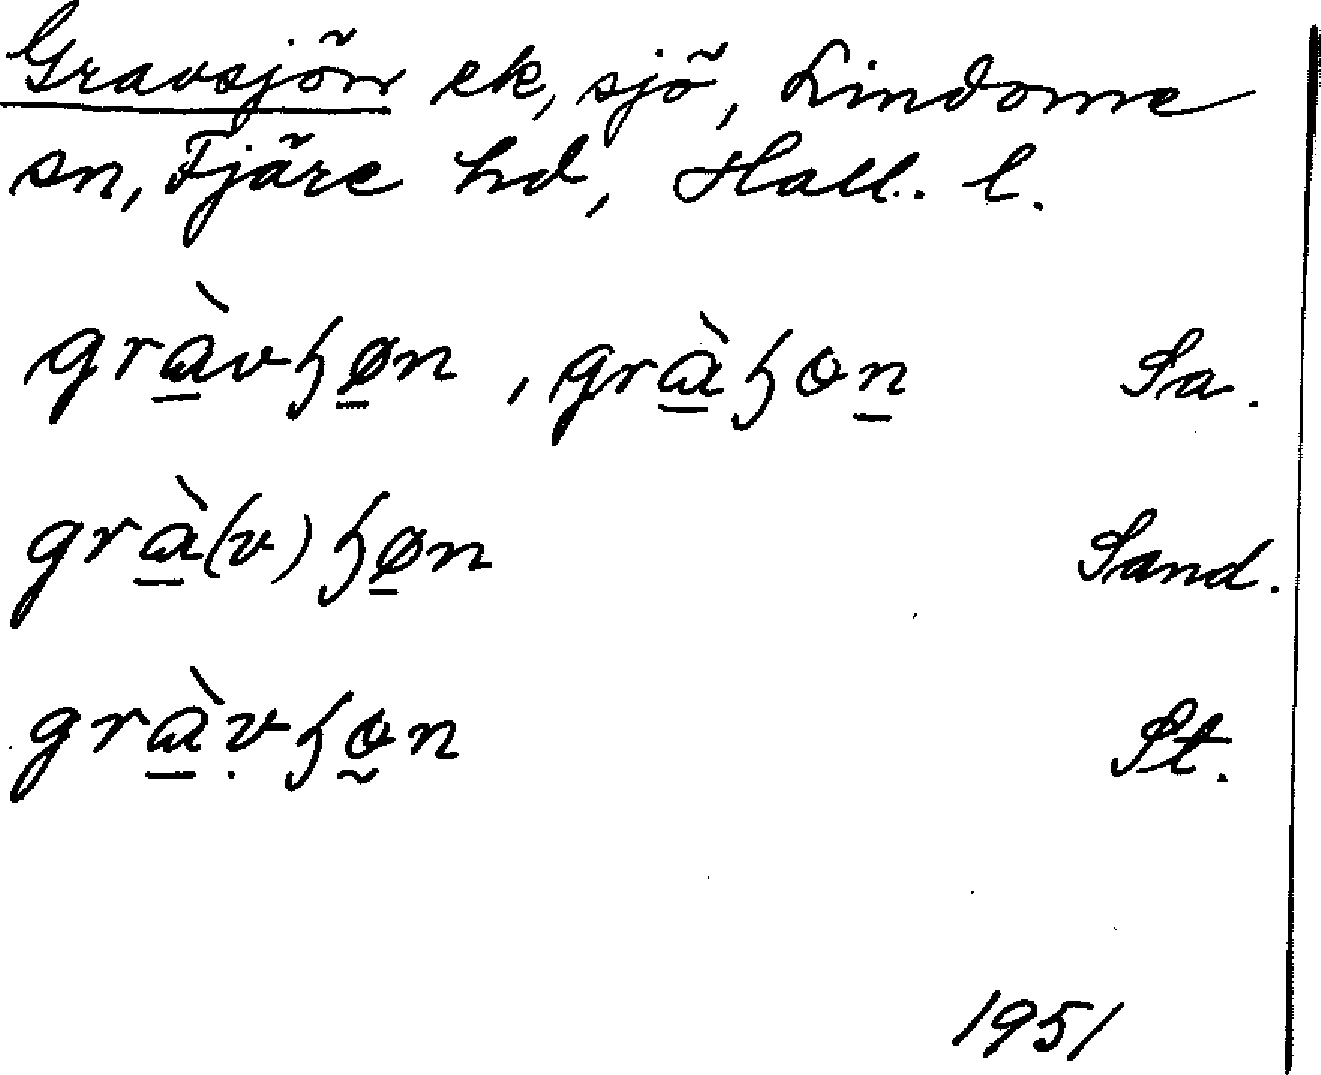 Gravsjön ek, sjö, Lindome
sn, Fjäre hd, Hall. l.
gràvɧøn, gràɧon Sa.
grà(v)ɧøn Sand.
gràvɧon St.
1951